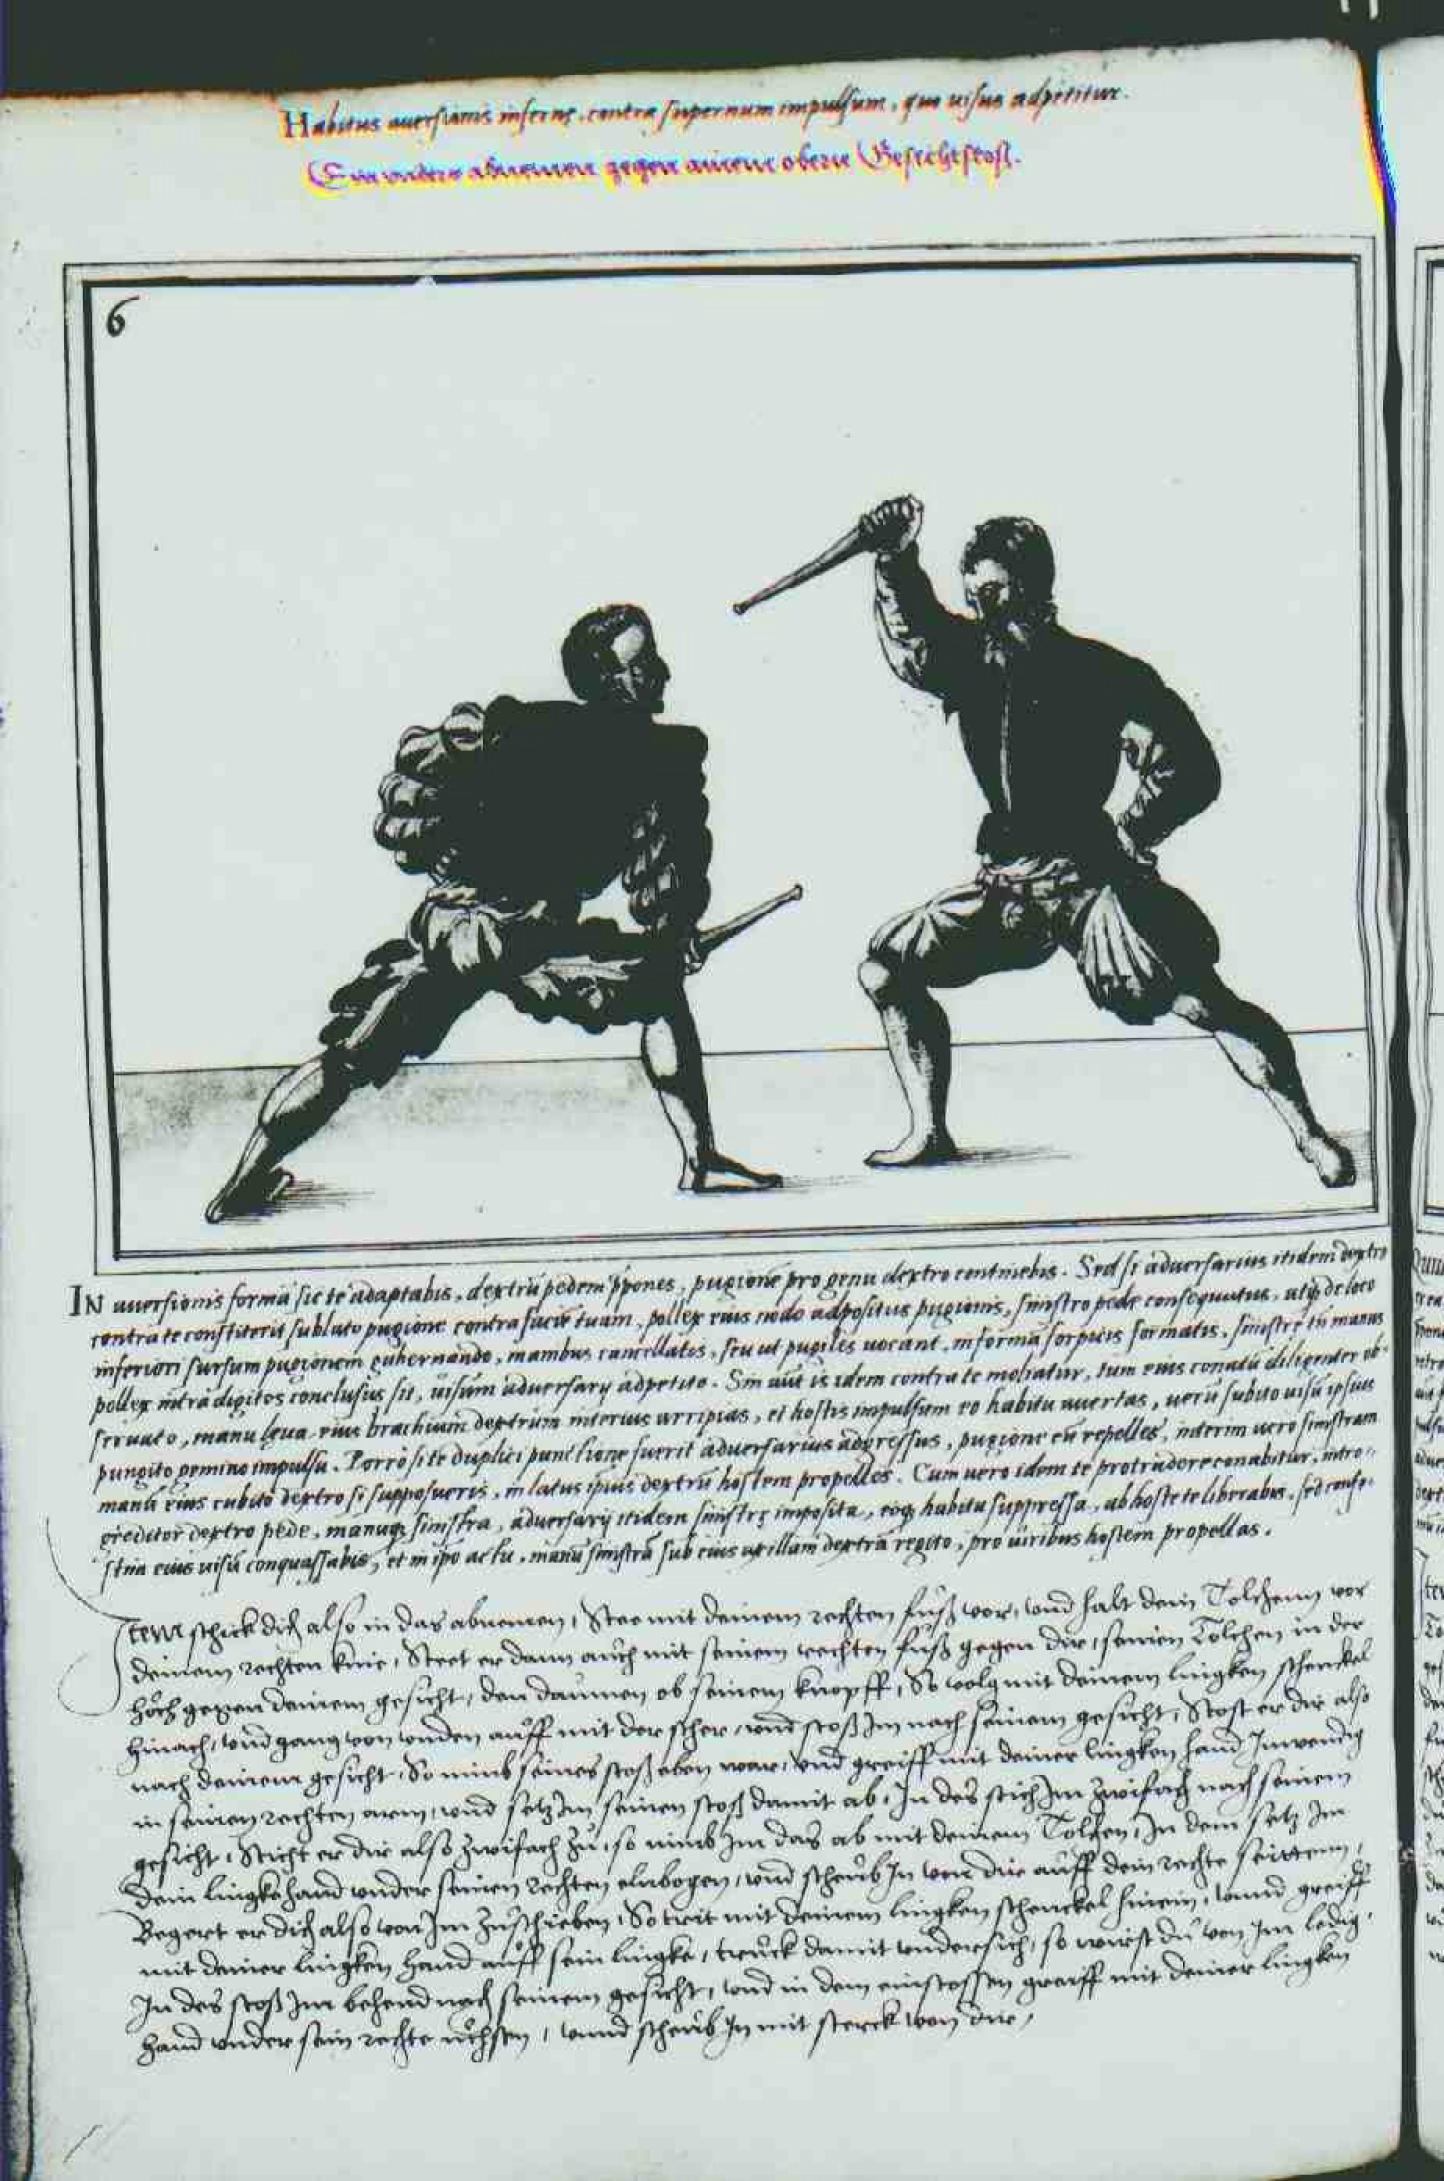 Habitus auersionis infernę, contra supernum impulsum, quo uisus adpetitur.
Ein unders abnemen gegen ainem obern Gesichtstoss.
6
IN auersionis formã sic te adaptabis, dextrũ pedem ꝓpones, pugionẽ pro genu dextro continebis. Sed si aduersarius itidem dextro
contra te constiterit sublato pugione contra faciẽ tuam, pollex eius nodo adpositus pugionis, sinistro pede consequutus, atq; de loco
inferiori sursum pugionem gubernando, manibus cancellatis, seu ut pugiles uocant, in forma forpicis formatis, sinistrę tñ manus
pollex intra digitos conclusus sit, uisum aduersarij adpetito. Sin aũt is idem contra te moliatur, tum eius conatũ diligenter ob-
seruato, manu lęua eius brachium dextrum interius arripias, et hostis impulsum eo habitu auertas, uerũ subito uisũ ipsius
pungito gemino impulsu. Porrò si te duplici punctione fuerit aduersarius adgressus, pugione eũ repelles, interim uero sinistram
manũ eius cubito dextro si supposueris, in latus ipsius dextrũ hostem propelles. Cum uero idem te protrudere conabitur, intro-
greditor dextro pede, manuq; sinistra, aduersarij itidem sinistrę imposita, eoq; habitu suppressa, ab hoste te liberabis, sed confe-
stim eius uisũ conquassabis, et in ipso actu, manũ sinistrã sub eius axillam dextrã regito, pro uiribus hostem propellas.
Item schick dich also in das abnemen, Stee mit deinem rechten fuͦß vor, vnd halt dein Tolchenn vor
deinem rechten knie, Steet er dann auch mit seinem rechten fuͦß gegen dir, seinen Tolchen in der
höch gegen deinem gesicht, den daumen ob seinem knopff, So volg mit deinem lingken schenckel
hinach, vnd gang von vnden auff mit der scher, vnd stoß Im nach seinem gesicht, Stost er dir also
nach deinem gesicht, So nimb seines stoß eben war, vnd greiff mit deiner lingken hand Inwendig
in seinen rechten arm, vnd setz Im seinen stoß damit ab, In des stich Im zwifach nach seinem
gesicht, Sticht er dir also zwifach zu, so nimb Im das ab mit deinem Tolchen, In dem setz Im
dein lingke hand vnder seinen rechten elnbogen, vnd scheub In von dir auff dein rechte seittenn,
Begert er dich also von Im zuschieben, So trit mit deinem lingken schenckel hinein, vnnd greiff
mit deiner lingken hand auff sein lingke, truck damit vndersich, so wirst du von Im ledig,
In des stoß Im behend nach seinem gesicht, vnd in dem einstossen greiff mit deiner lingken
hand vnder sein rechte uͤchsen, vnnd scheub In mit sterck von dir,